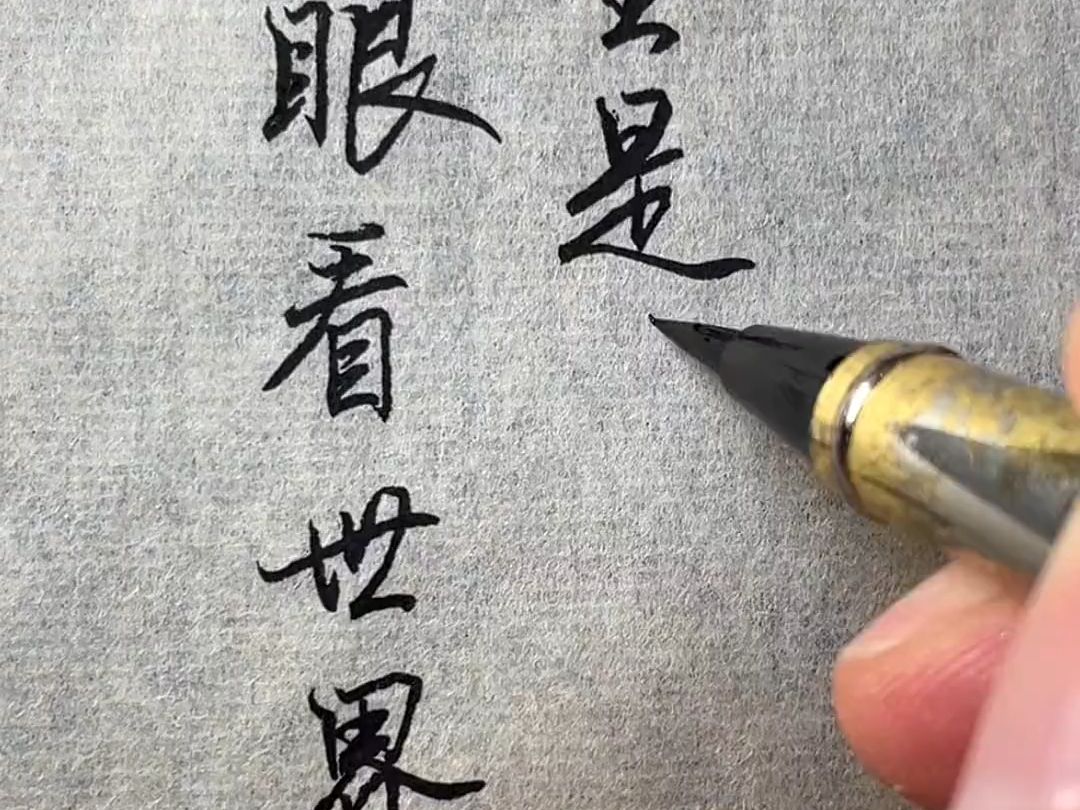 眼看世界
是